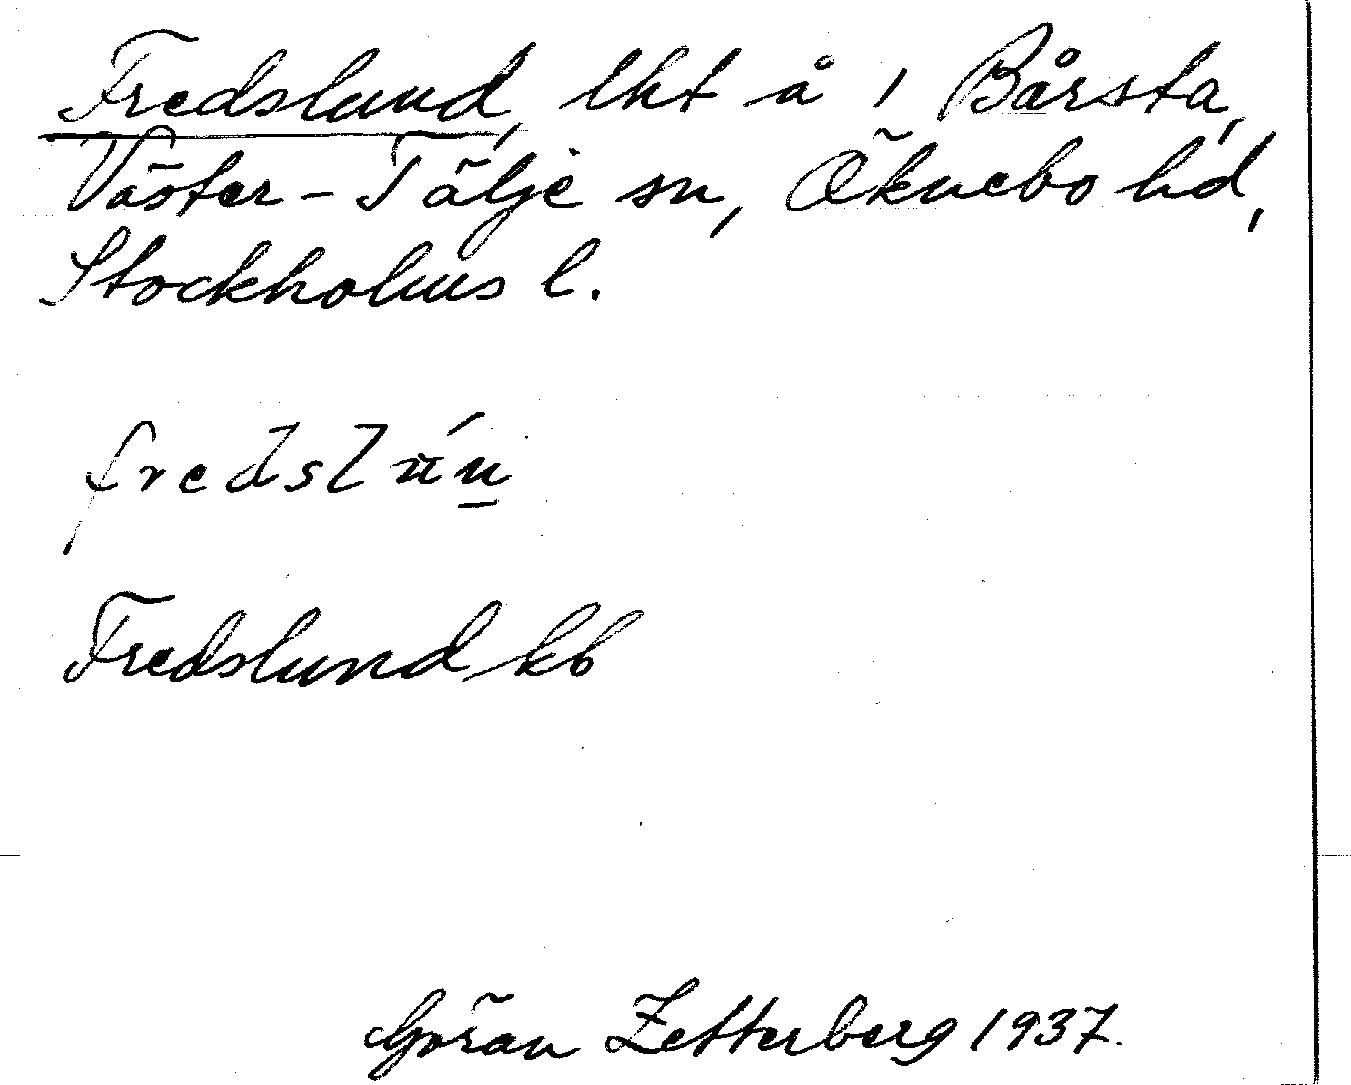 Fredslund, lht å 1 Bårsta,
Väster-Tälje sn, Öknebo hd,
Stockholms l.
Fredslund kb
Göran Zetterberg 1937.